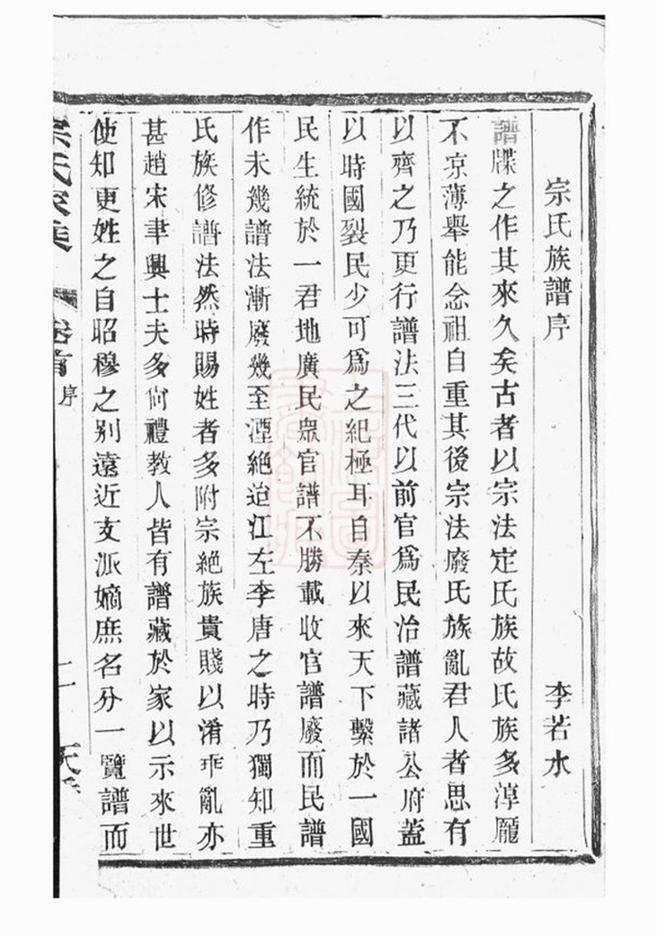 宗氏族譜序
李若水
譜牒之作其來久矣古者以宗法定氏族故氏族多淳龐
不凉薄舉能念祖自重其後宗法廢氏族亂君人者思有
以齊之乃更行譜法三代以前官爲民治譜藏諸公府蓋
以時國裂民少可爲之紀極耳自秦以來天下繫於一國
民生統於一君地廣民衆官譜不勝載收官譜廢而民譜
作未幾譜法漸廢幾至湮絶迨江左李唐之時乃獨知重
氏族修譜法然時賜姓者多附宗絶族貴賤以淆乖亂亦
甚趙宋聿興士夫多尚禮教人皆有譜藏於家以示來世
使知更姓之自昭穆之别遠近支派嫡庶名分一覽譜而
宗氏家乘
卷首
序